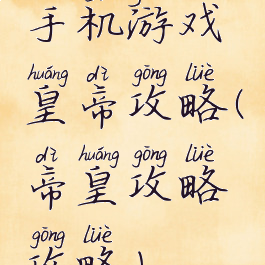 手机游戏
huáng dì gōng lüè
皇帝攻略(
dì huáng gōng lüè
帝皇攻略
gōng lüè
攻略)